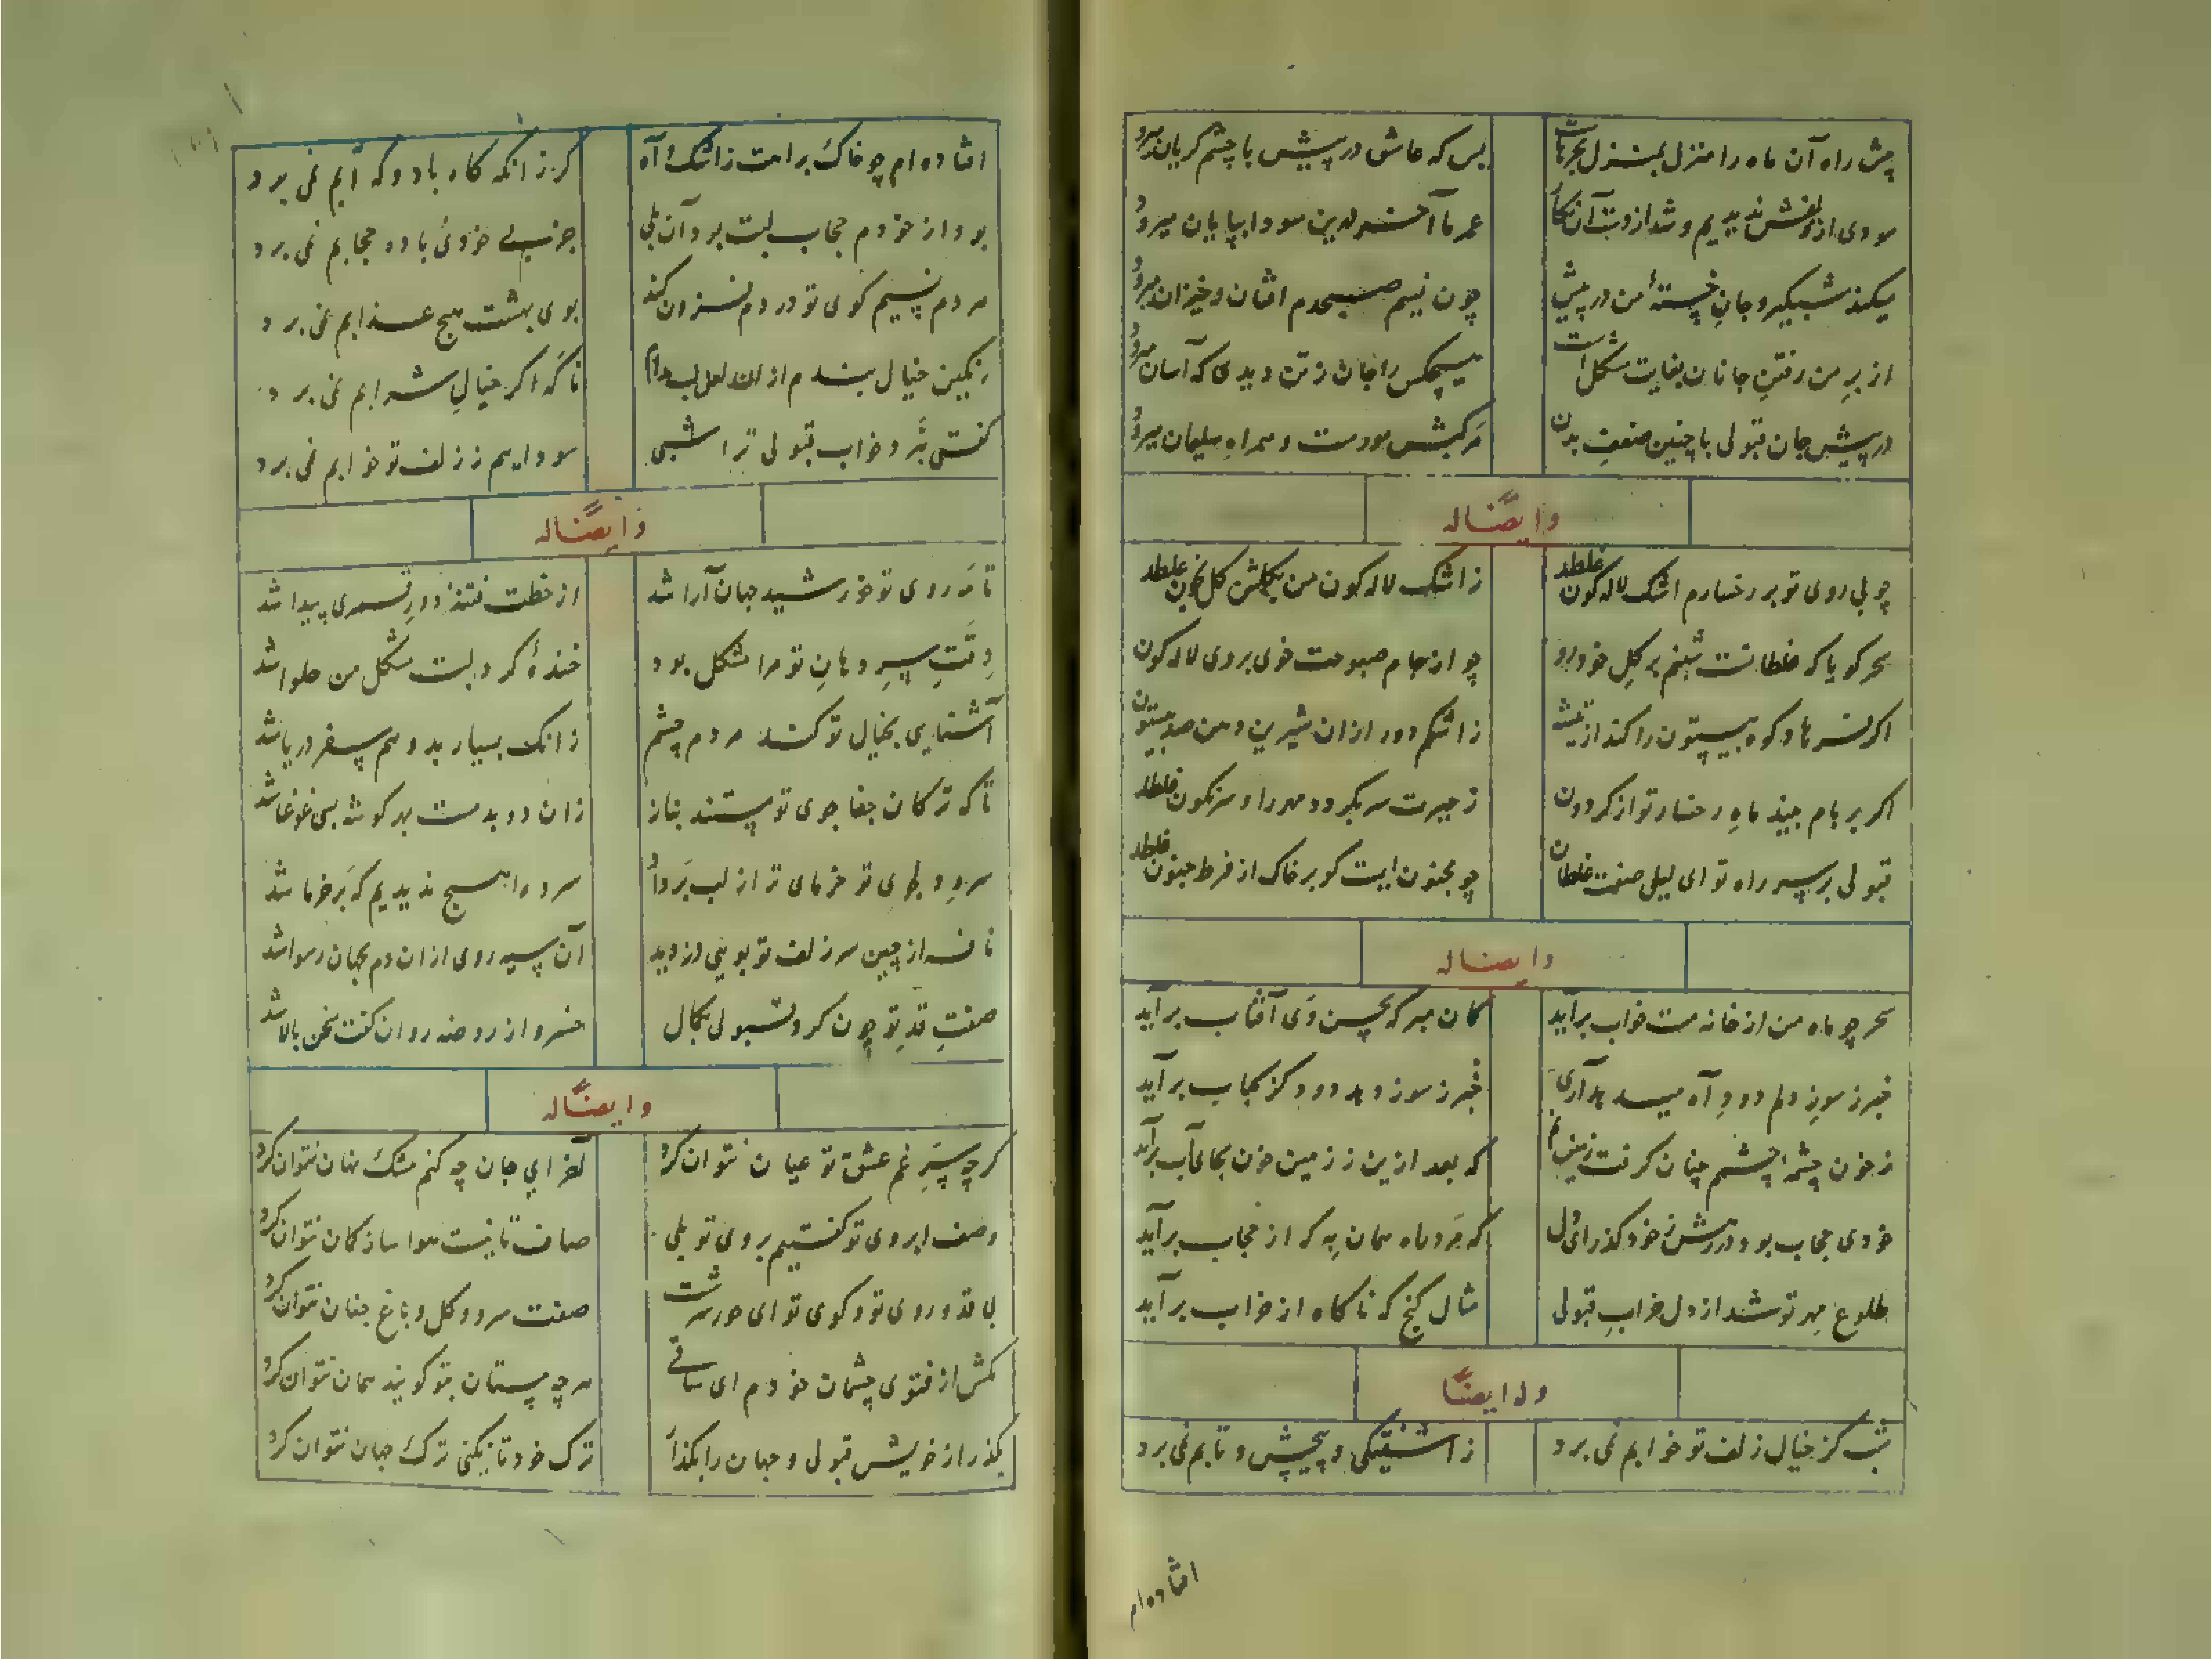 پیش راه آن ماه را منزل بمنزل بحر ماست بس که عاشق در پیش با چشم کریان میرود
سودی از زلفش ندیدیم و شد از دست آن نکار عمر ما آخر درین سودا بپایان میرود
میکند شبکیر و جانِ خستهٔ من در پیش چون نسیم صبحدم افتان و خیزان میرود
از برِ من رفتنِ جانان بغایت مشکل است هیچکس را جان ز تن دیدی که آسان میرود
در پیش جان قبولی با چنین ضعفِ بدن مرکبش مورست و همراه سلیمان میرود
وایضاً له
چو بی روی تو بر رخسارم اشک لاله کون غلطد ز اشک لاله کون من بکلشن کل بخون غلطد
سحر کویا که غلطانست شبنم بر کل خودرو چو از جام صبوحت خوی بروی لاله کون
اکر فرهاد کوه بیستون را کند از تیشه ز اشکم دور ازان شیرین و من صد بیستون
اکر بر بام بیند ماهِ رخسار تو از کردون ز حیرت سر بکردد مهر را و سرنکون غلطد
قبولی بر سر راه تو ای لیلی صفت غلطان چو مجنونیست کو بر خاک از فرط جنون غلطد
وایضاً له
سحر چو ماه من از خانه مست خواب برآید کمان مبر که بحسن وَی آفتاب برآید
خبر ز سوزِ دلم دودِ آه میدهد آری خبر ز سوز دهد دود کز کباب برآید
ز خون چشمهٔ چشمم چنان کرفت زمین نم که بعد ازین ز زمین خون بجای آب برآید
خودی حجاب بود در رهش ز خود کذر ای دل که مرد راه همان به که از حجاب برآید
طلوع مهر تو شد از دل خرابِ قبولی مثال کنج که ناکاه از خراب برآید
وله ایضاً
شب کز خیال زلف تو خوابم نمی برد ز آشفتکی و پیچش و تابم نمی برد
افتاده ام
افتاده ام چو خاک براهت ز اشک و آه کر زانکه کاه باد و که آبم نمی برد
بود از خودم حجاب لبت بود آن بلی جز بیخودی باده حجابم نمی برد
هر دم نسیم کوی تو دردم فزون کند بوی بهشت هیچ عذابم نمی برد
رنکین خیال بندم از ان لعل لب مدام ناکه اکر خیالِ شرابم نمی برد
کفتی ببرد خواب قبولی ترا شبی سودایم ز زلف تو خوابم نمی برد
وایضاً له
تا مه روی تو خورشید جهان آرا شد از خطت فتنهٔ دورِ قمری پیدا شد
دقتِ سرِ دهانِ تو مرا مشکل بود خندهٔ کرد لبت مشکل من حلوا شد
آشنایی بخیال تو کند مردم چشم زانک بسیار بد و هم سفر دریا شد
تا که ترکان جفا جوی تو مستند بناز زان دو بدمست بهر کوشه بسی غوغا شد
سرو بالای تو خرمای تر از لب بر داد سرو را هیچ ندیدیم که بر خرما شد
نافه از چین سر زلف تو بویی دزدید آن سیه روی ازان دم بجهان رسوا شد
صفتِ قدِ تو چون کرد قبولی بکمال خسرو از روضه روان کفت سخن بالا شد
وایضاً له
کرچه سرِ غم عشق تو عیان نتوان کرد آخر ای جان چه کنم مشک نهان نتوان کرد
وصف ابروی تو کفتیم بروی تو بلی صاف تا نیست هوا ساز کمان نتوان کرد
بی قد و روی تو و کوی تو ای حور سرشت صفت سرو و کل و باغ جنان نتوان کرد
بکش از فتوی چشمان خودم ای ساقی هر چه مستان بتو کویند همان نتوان کرد
بکذر از خویش قبولی و جهان را بکذار ترک خود تا نکنی ترک جهان نتوان کرد